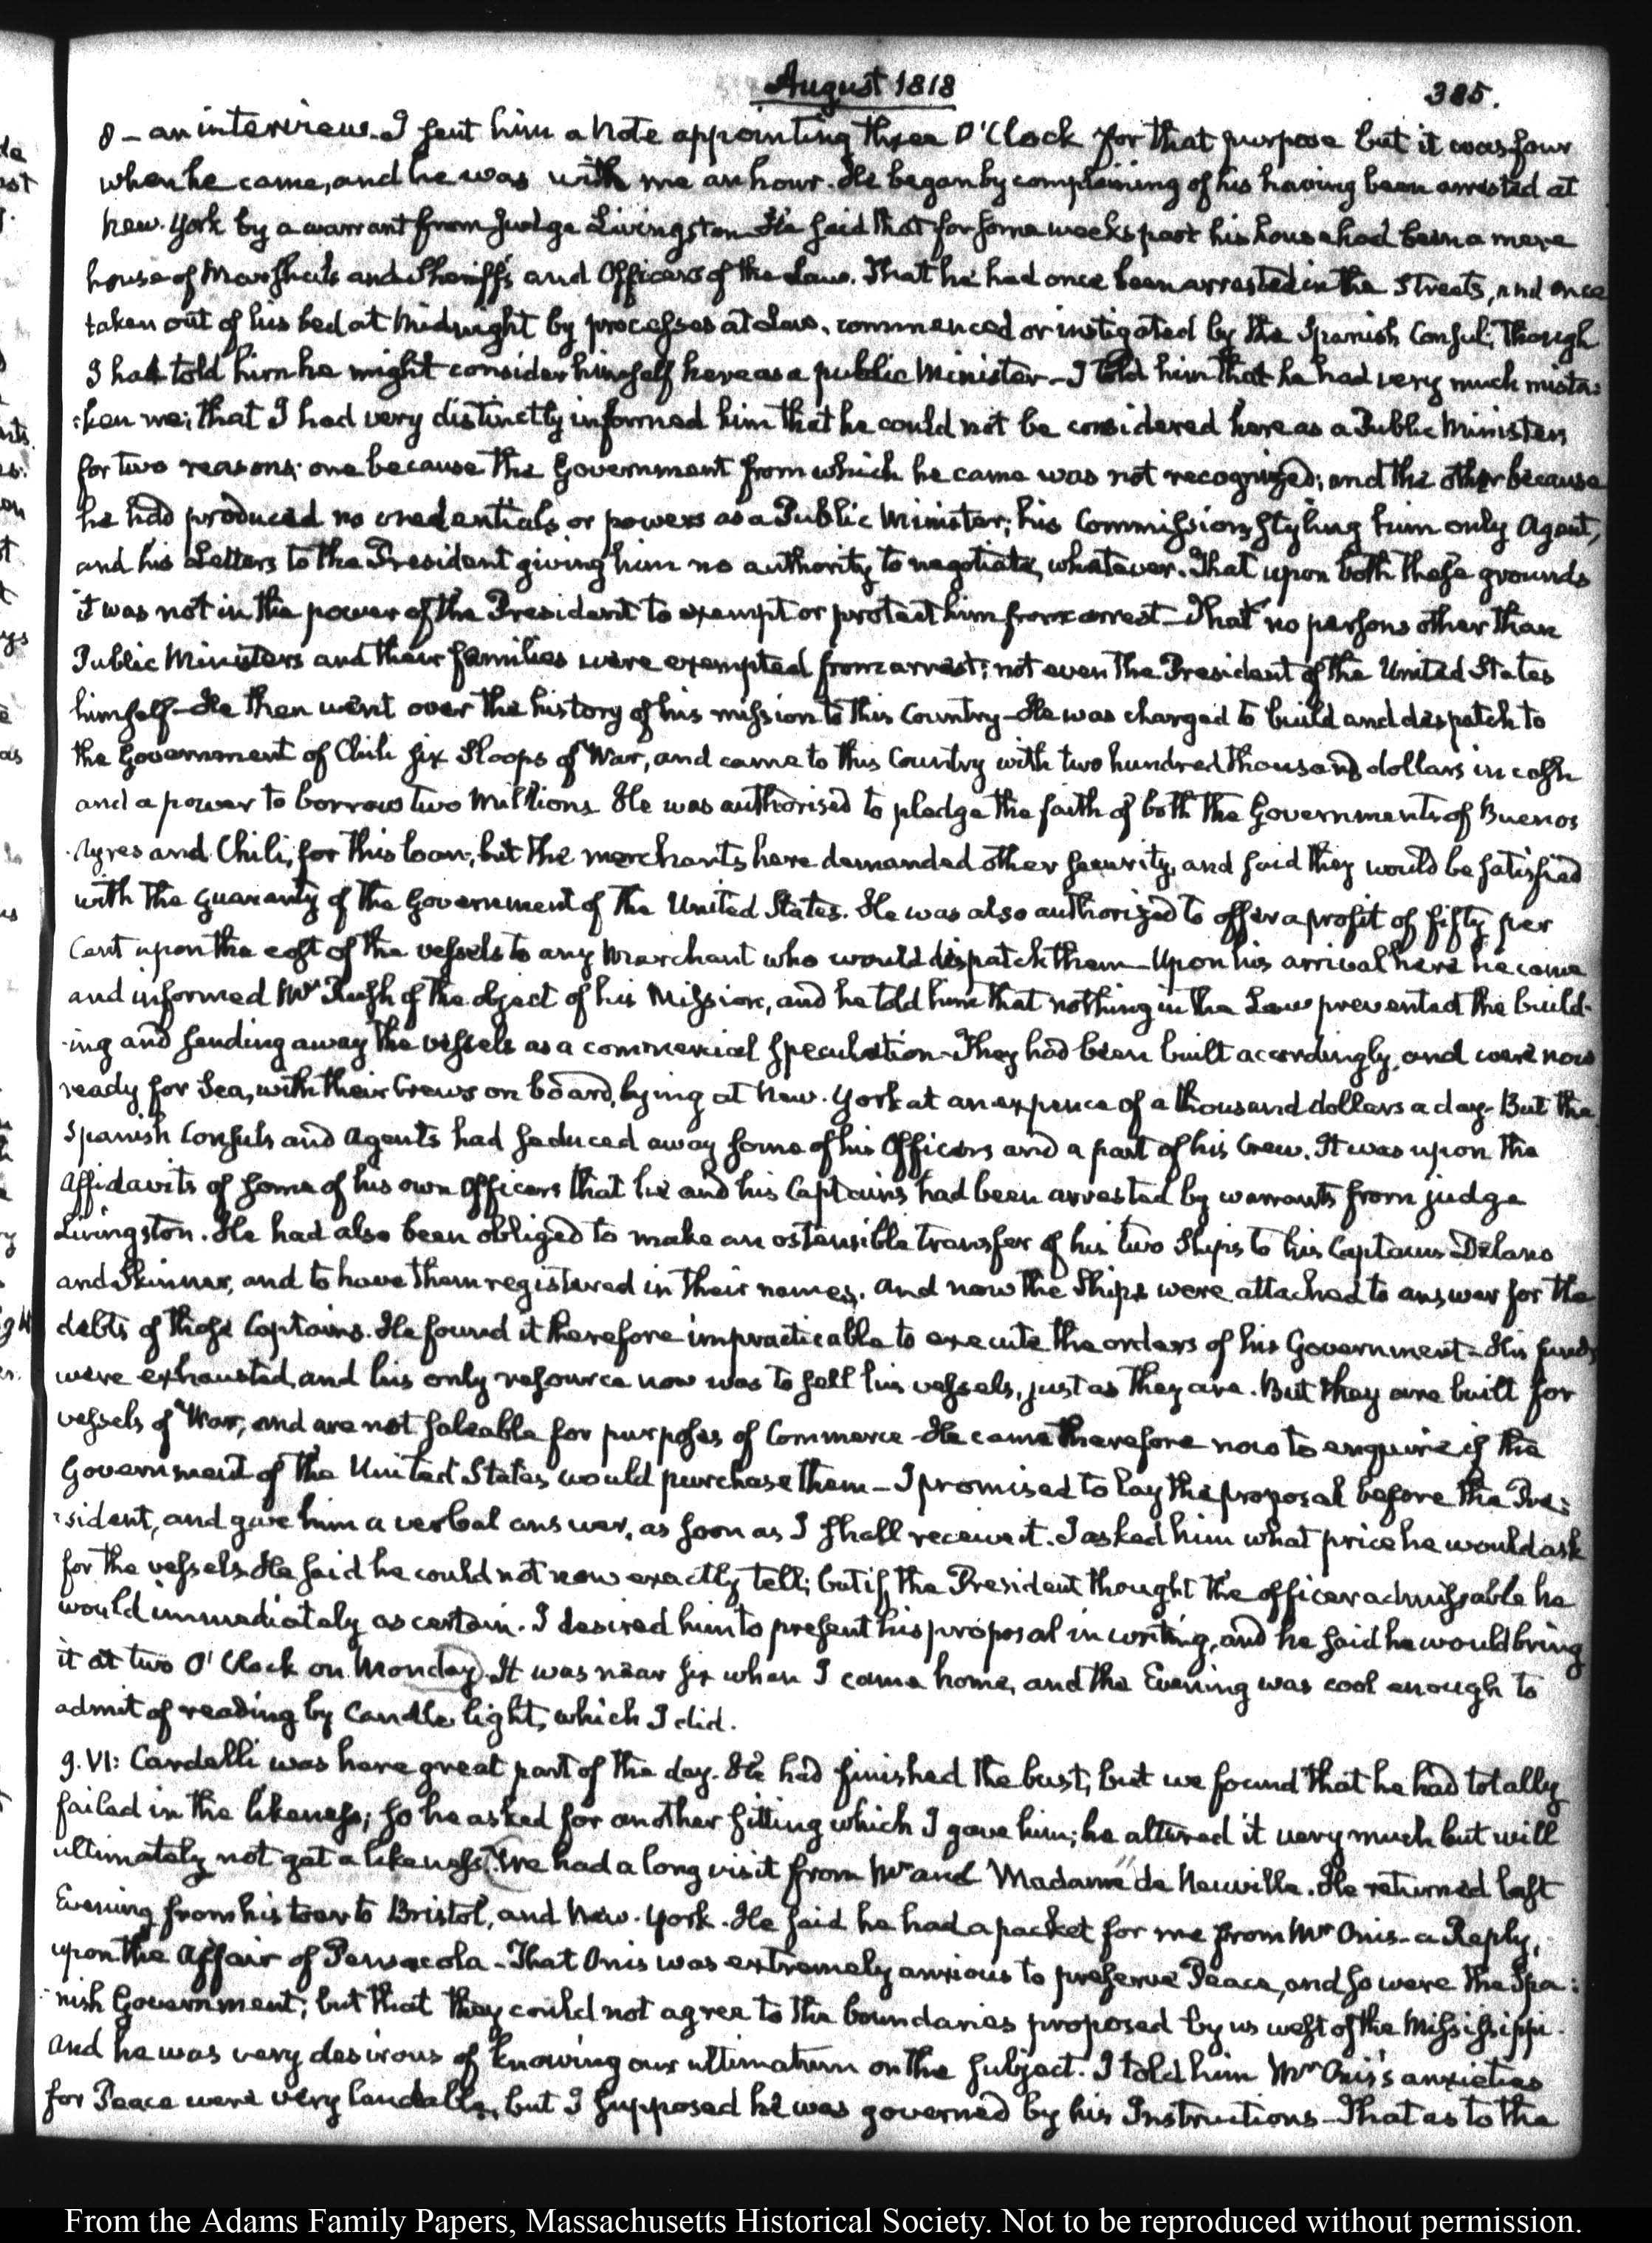 August 1818
385.
8 – an interview. I sent him a Note appointing three O'Clock for that purpose but it was four
when he came, and he was with me an hour. He began by complaining of his having been arrested at
New-York by a warrant from Judge Livingston – He said that for some weeks past his house had been a mere
house of Marshals and Sheriffs and Officers of the Law. That he had once been arrested in the Streets, and once
taken out of his bed at Midnight by processes at Law, commenced or instigated by the Spanish Consul; though
I had told him he might consider himself here as a public Minister – I told him that he had very much mista:
:ken me; that I had very distinctly informed him that he could not be considered here as a Public Minister,
for two reasons; one because the Government from which he came was not recognized; and the other because
he had produced no credentials or powers as a Public Minister; his Commission, styling him only Agent,
and his Letters to the President giving him no authority to negotiate, whatever. That upon both these grounds
it was not in the power of the President to exempt or protect him from arrest – That no persons other than
Public Ministers and their families were exempted from arrest; not even the President of the United States
himself – He then went over the history of his mission to this Country – He was charged to build and despatch to
the Government of Chili six Sloops of War, and came to this Country with two hundred thousand dollars in cash
and a power to borrow two Millions. He was authorised to pledge the faith of both the Governments of Buenos
Ayres and Chili, for this loan; but the merchants here demanded other security, and said they would be satisfied
with the guaranty of the Government of the United States. He was also authorized to offer a profit of fifty per
Cent upon the cost of the vessels to any Merchant who would dispatch them – Upon his arrival here he came
and informed Mr Rush of the object of his Mission, and he told him that nothing in the Law prevented the build-
-ing and sending away the vessels as a commercial speculation – They had been built accordingly, and were now
ready for Sea, with their Crews on board, lying at New-York at an expence of a thousand dollars a day – But the
Spanish Consuls and Agents had seduced away some of his Officers and a part of his Crew. It was upon the
Affidavits of some of his own Officers that he and his Captains had been arrested by warrants from judge
Livingston. He had also been obliged to make an ostensible transfer of his two Ships to his Captains Delano
and Skinner, and to have them registered in their names. And now the Ships were attached to answer for the
debts of those Captains. He found it therefore impracticable to execute the orders of his Government – His funds
were exhausted, and his only resource now was to sell his vessels, just as they are. But they are built for
vessels of War, and are not saleable for purposes of Commerce – He came therefore now to enquire if the
Government of the United States would purchase them – I promised to lay the proposal before the Pre:
:sident, and give him a verbal answer, as soon as I shall receive it. I asked him what price he would ask
for the vessels. He said he could not now exactly tell; but if the President thought the officer admissable he
would immediately ascertain. I desired him to present his proposal in writing, and he said he would bring
it at two O'Clock on Monday. It was near six when I came home, and the Evening was cool enough to
admit of reading by Candle light, which I did.
9. VI: Cardelli was here great part of the day. He had finished the bust, but we found that he had totally
failed in the likeness; so he asked for another sitting which I gave him; he altered it very much but will
ultimately not get a likeness. We had a long visit from Mr and Madame de Neuville. He returned last
Evening from his tour to Bristol, and New-York. He said he had a packet for me from Mr Onis – a Reply,
upon the Affair of Pensacola – That Onis was extremely anxious to preserve Peace, and so were the Spa:
nish Government; but that they could not agree to the boundaries proposed by us west of the Mississippi.
And he was very desirous of knowing our ultimatum on the subject. I told him Mr Onis's anxieties
for Peace were very laudable, but I supposed he was governed by his Instructions – That as to the
From the Adams Family Papers, Massachusetts Historical Society. Not to be reproduced without permission.